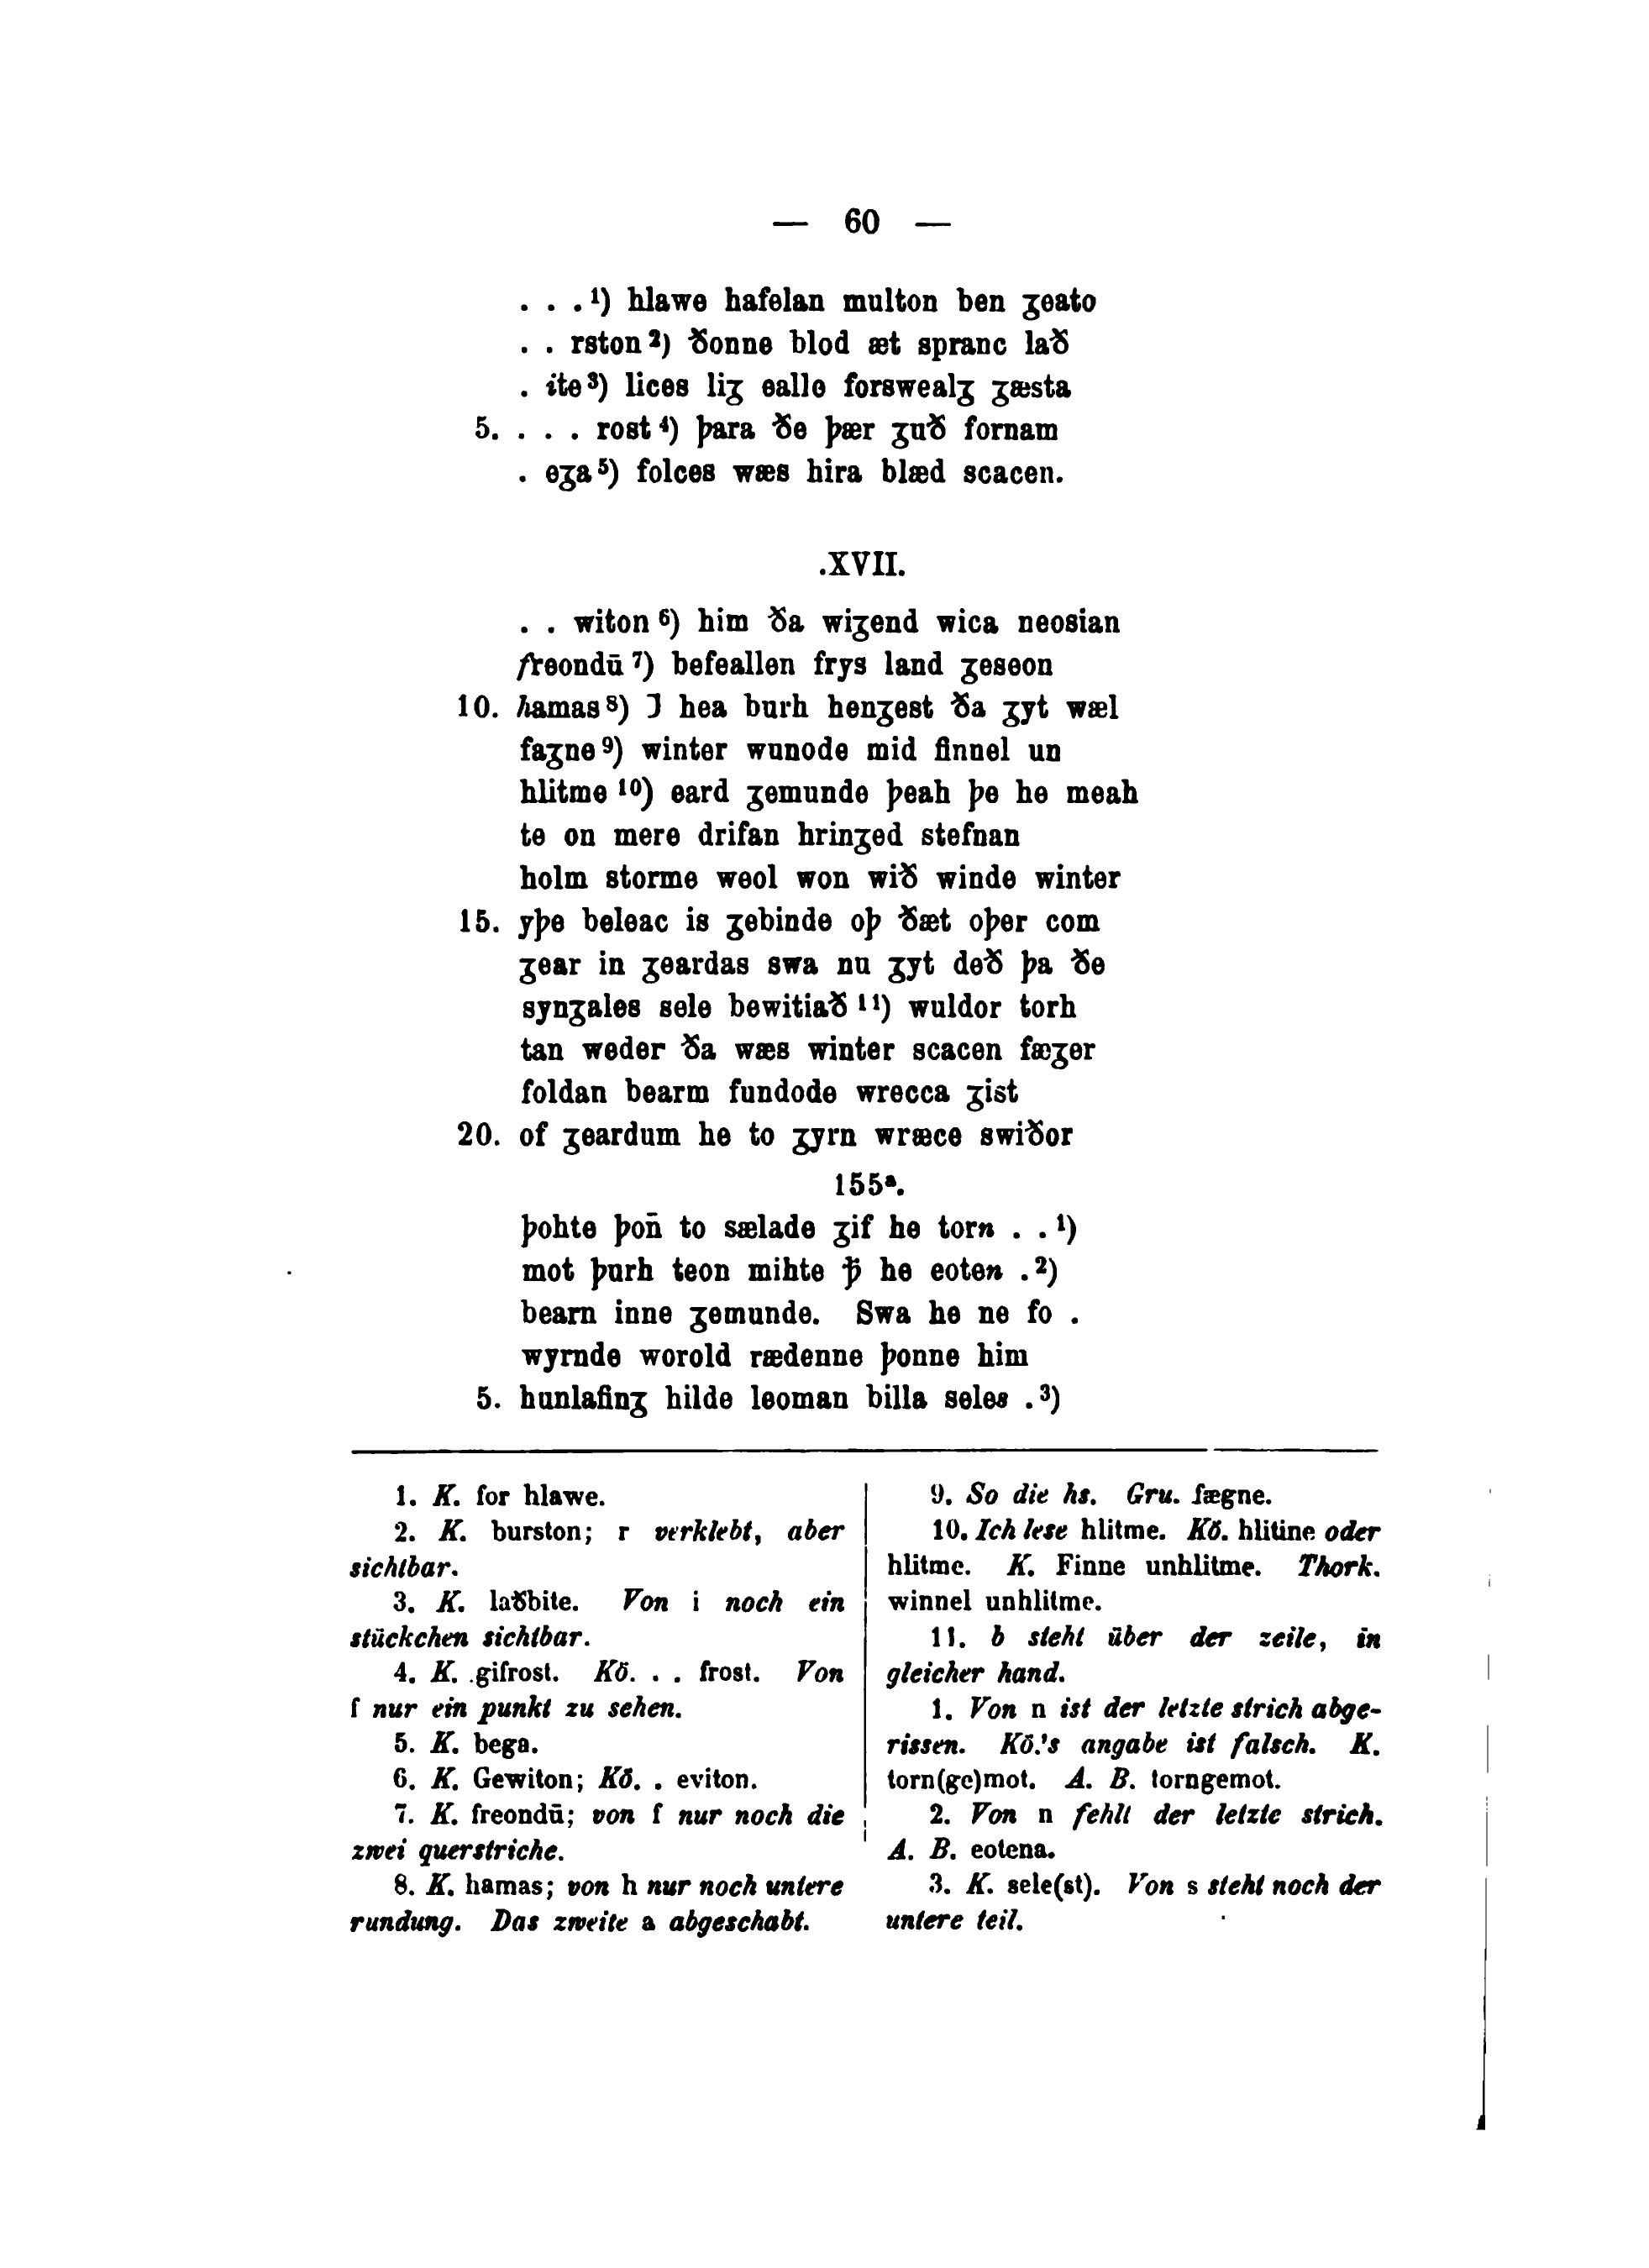 — 60 —
. . . ¹) hlawe hafelan multon ben ʒeato
. . rston ²) ðonne blod æt spranc lað
. ite ³) lices liʒ ealle forswealʒ ʒæsta
5. . . . rost ⁴) þara ðe þær ʒuð fornam
. eʒa ⁵) folces wæs hira blæd scacen.
.XVII.
. . witon ⁶) him ða wiʒend wica neosian
freondū ⁷) befeallen frys land ʒeseon
10. hamas ⁸) ⁊ hea burh henʒest ða ʒyt wæl
faʒne ⁹) winter wunode mid finnel un
hlitme ¹⁰) eard ʒemunde þeah þe he meah
te on mere drifan hrinʒed stefnan
holm storme weol won wið winde winter
15. yþe beleac is ʒebinde oþ ðæt oþer com
ʒear in ʒeardas swa nu ʒyt deð þa ðe
synʒales sele bewitiað ¹¹) wuldor torh
tan weder ða wæs winter scacen fæʒer
foldan bearm fundode wrecca ʒist
20. of ʒeardum he to ʒyrn wræce swiðor
155ᵃ.
þohte þon̄ to sælade ʒif he torn . . ¹)
mot þurh teon mihte ꝥ he eoten . ²)
bearn inne ʒemunde. Swa he ne fo .
wyrnde worold rædenne þonne him
5. hunlafinʒ hilde leoman billa seles . ³)
1. K. for hlawe.
2. K. burston; r verklebt, aber
sichtbar.
3. K. laðbite. Von i noch ein
stückchen sichtbar.
4. K. gifrost. Kö. . . frost. Von
f nur ein punkt zu sehen.
5. K. bega.
6. K. Gewiton; Kö. . eviton.
7. K. freondū; von f nur noch die
zwei querstriche.
8. K. hamas; von h nur noch untere
rundung. Das zweite a abgeschabt.
9. So die hs. Gru. fægne.
10. Ich lese hlitme. Kö. hlitine oder
hlitme. K. Finne unhlitme. Thork.
winnel unhlitme.
11. b steht über der zeile, in
gleicher hand.
1. Von n ist der letzte strich abge-
rissen. Kö.'s angabe ist falsch. K.
torn(ge)mot. A. B. torngemot.
2. Von n fehlt der letzte strich.
A. B. eotena.
3. K. sele(st). Von s steht noch der
untere teil.